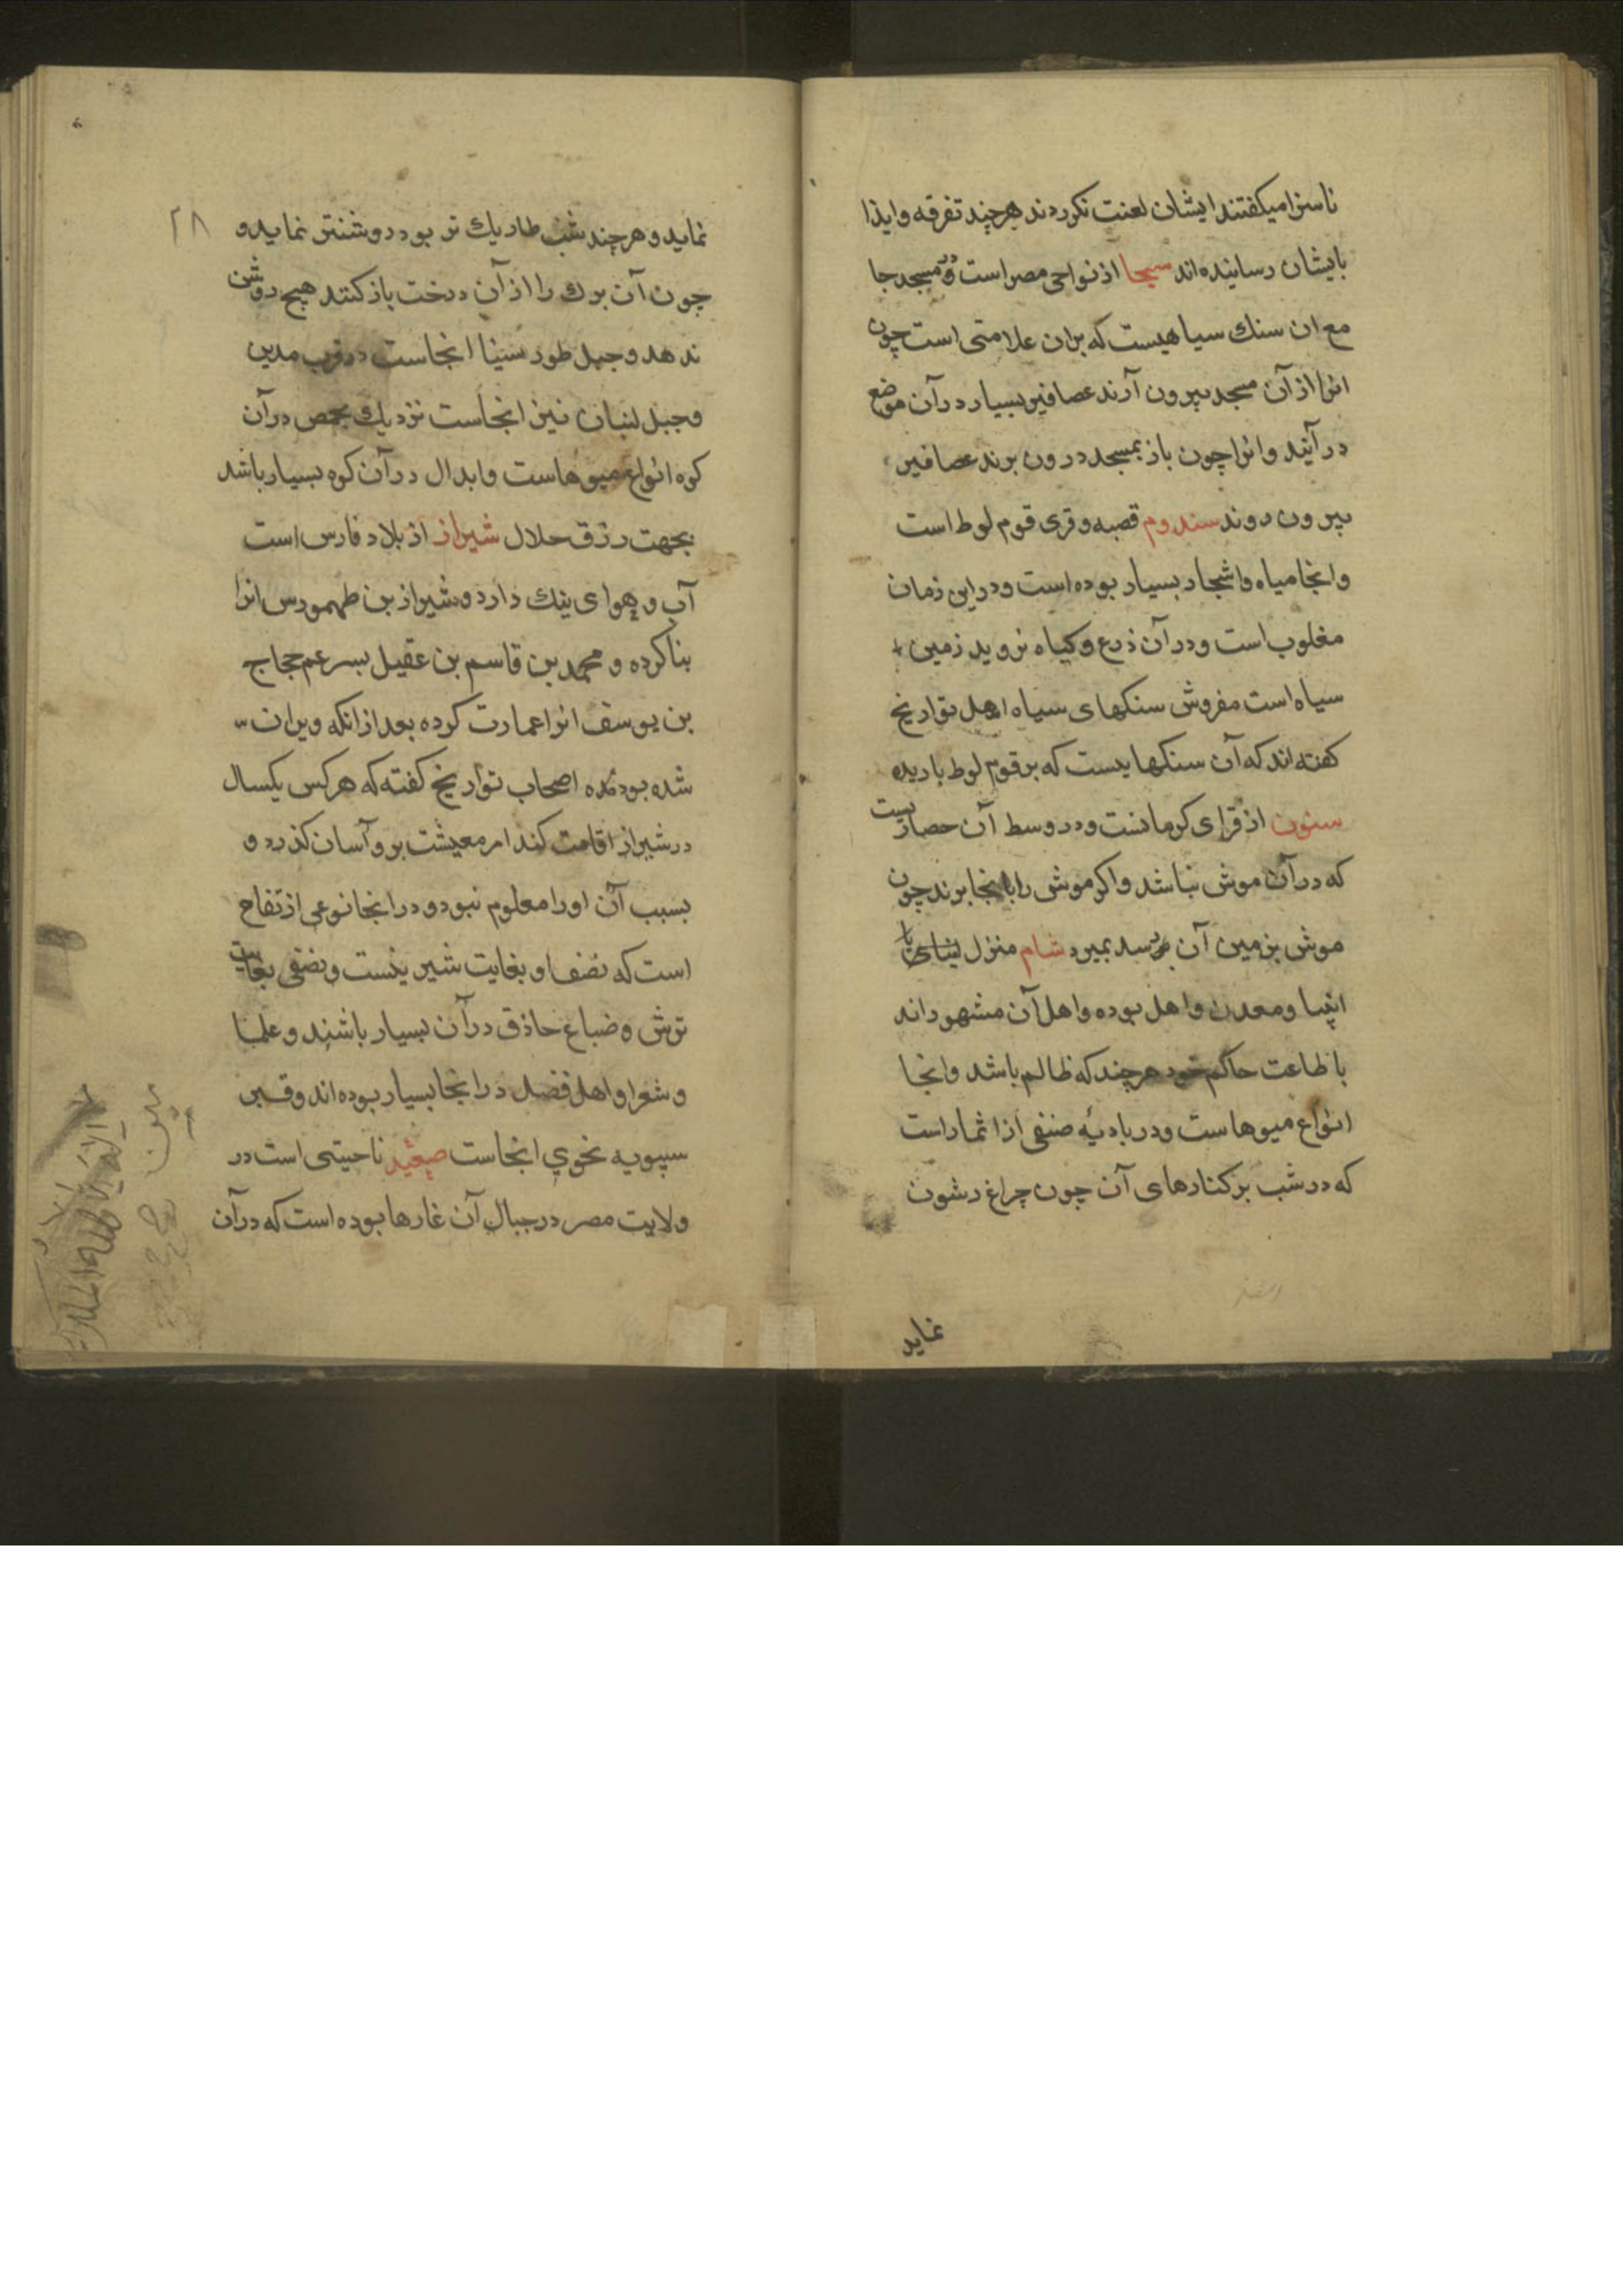 ناسزا میکفتند ایشان لعنت نکردند هرچند تفرقه و ایذا
بایشان رسانیده‌اند سیحا از نواحی مصر است و در مسجد جا
مع ان سنك سیاهیست که بران علامتی است چون
انرا از آن مسجد بیرون آرند عصافیر بسیار در آن موضع
در آیند و انرا چون باز بمسجد درون برند عصافیر
بیرون روند سندوم قصبه و قری قوم لوط است
و انجا میاه و اشجار بسیار بوده است و در این زمان
مغلوب است و در آن ذرع و کیاه نروید زمین
سیاه است مفروش سنکهای سیاه اهل تواریخ
کفته‌اند که آن سنکهایست که بر قوم لوط باریده
سنون از قرای کرمانست و در وسط آن حصاریست
که در آن موش نباشد و اکر موش را بانجا برند چون
موش بزمین آن برسد بمیرد شام منزل
انبیا و معدن و اهل بوده و اهل آن مشهوراند
با طاعت حاکم خود هرچند که ظالم باشد و انجا
انواع میوهاست و در بادیه صنفی از اثمار است
که در شب بر کنارهای آن چون چراغ رشون
نماید
۲۸
نماید و هرچند شب طاریك تر بود روشنتر نماید و
چون آن برك را از آن درخت باز کنند هیچ روشن
ندهد و جبل طور سینا انجاست در قرب مدین
و جبل لنبان نیز انجاست نزدیك بحمص در آن
کوه انواع میوهاست و ابدال در آن کوه بسیار باشد
بجهت رزق حلال شیراز از بلاد فارس است
آب و هوای نیك دارد و شیراز بن طهمورس انرا
بنا کرده و محمد بن قاسم بن عقیل بسر عم حجاج
بن یوسف انرا عمارت کرده بعد از انکه ویران
شده بود اصحاب تواریخ کفته که هرکس یکسال
در شیراز اقامت کند امر معیشت برو آسان کذرد و
بسبب آن او را معلوم نبود و در انجا نوعی از تفاح
است که نصف او بغایت شیرینست و نصفی بغایت
ترش و ضباغ حاذق در آن بسیار باشند و علما
و شعرا و اهل فضل در انجا بسیار بوده‌اند و قبر
سیبویه نحوی انجاست صعید ناحیتی است در
ولایت مصر در جبال آن غارها بوده است که در آن